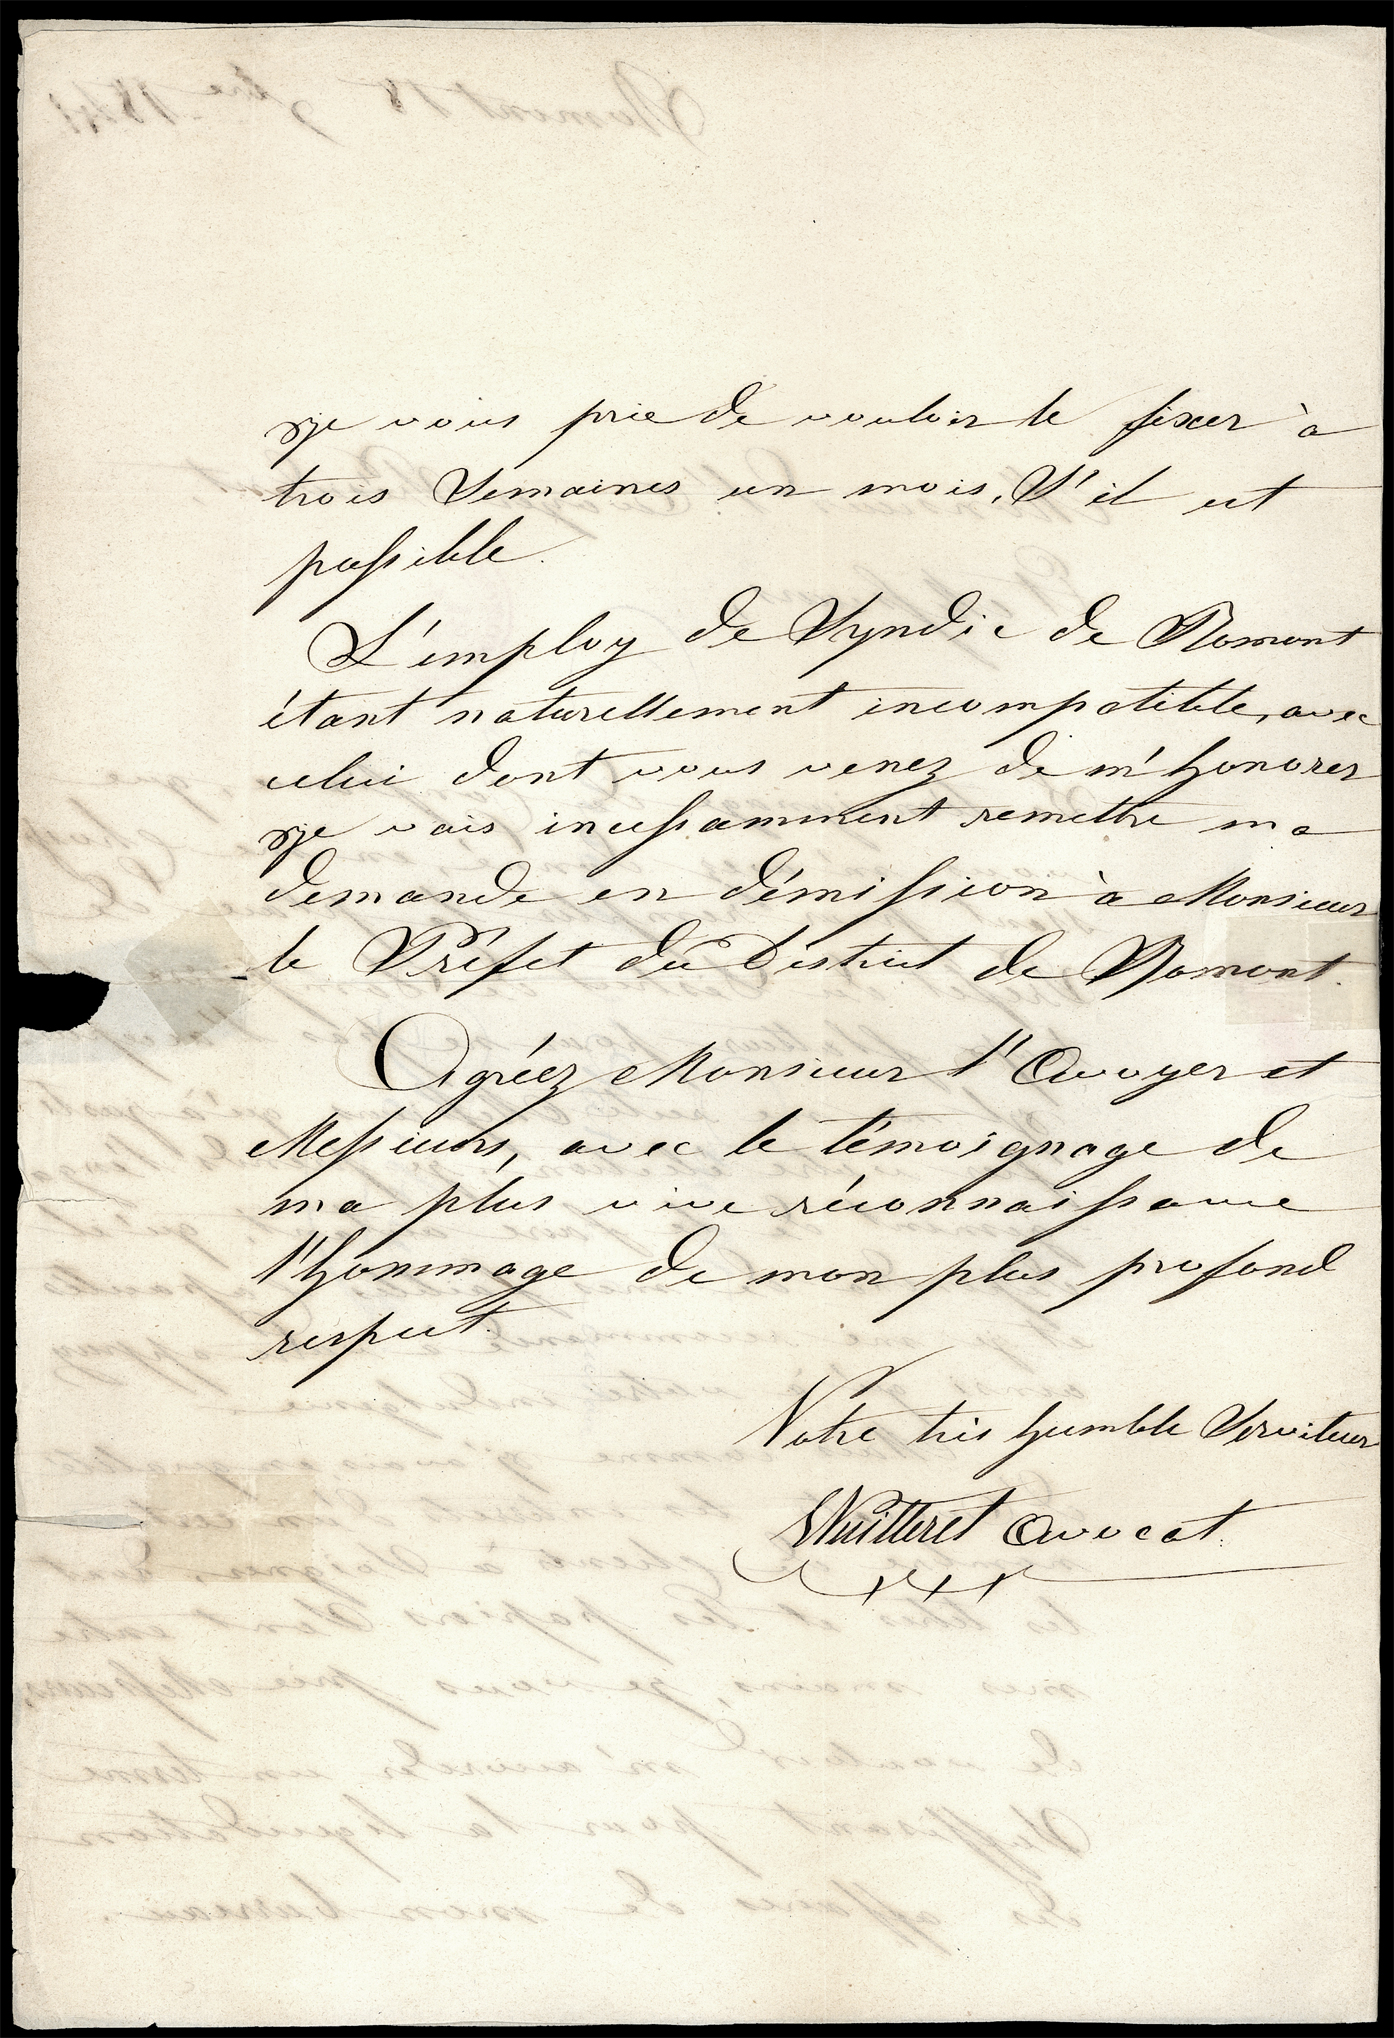 je vous prie de vouloir le fixer à
trois Semaines un mois, S'il est
possible.
L'employ de Syndic de Romont
étant naturellement incompatible, avec
celui dont vous venez de m'honorer
je vais incessamment remettre ma
demande en démission à Monsieur
le Préfet du District de Romont.
Agréez Monsieur l'Avoyer et
Messieurs, avec le témoignage de
ma plus vive réconnaissance
l'hommage de mon plus profond
respect.
Votre très humble Serviteur
Wuilleret Avocat.